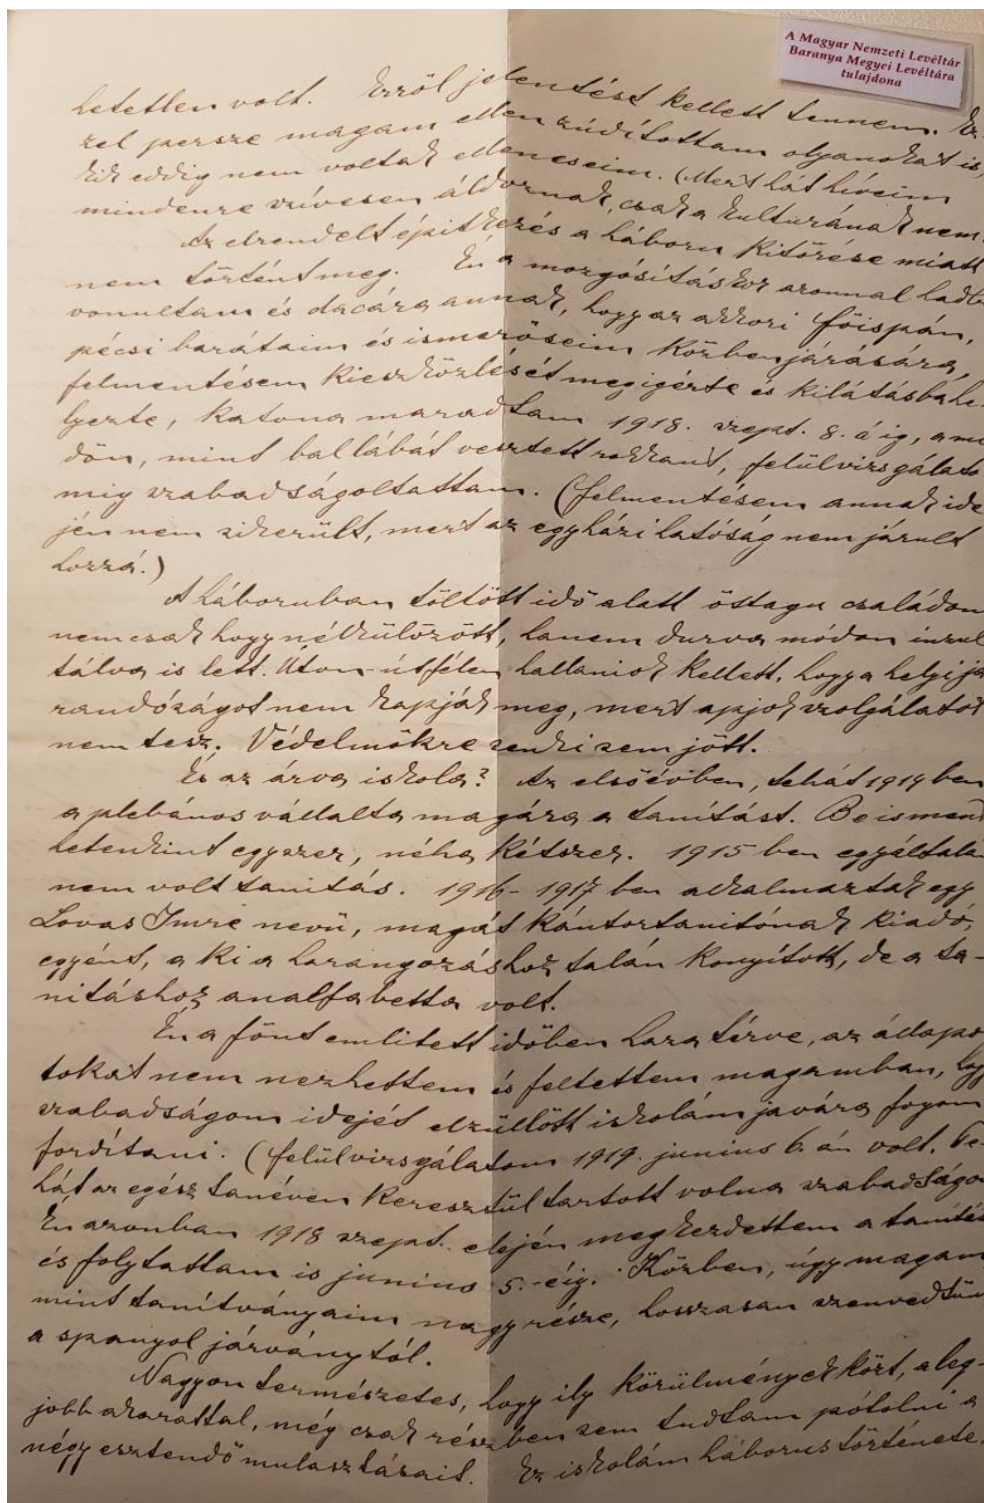 A Magyar Nemzeti Levéltár
Baranya Megyei Levéltára
tulajdona
hetetlen volt. Erről jelentést kellett tennem. Ez-
zel persze magam ellen zúdítottam olyanokat is,
kik eddig nem voltak elleneseim. (Mert hát híveim
mindenre szívesen áldoznak, csak a kulturának nem.
Az elrendelt építkezés a háboru kitörése miatt
nem történt meg. Én a mozgósításkor azonnal hadba
vonultam és dacára annak, hogy az akkori főispán,
pécsi barátaim és ismerőseim közbenjárására,
felmentésem kieszközlését megigérte és kilátásba he-
lyezte, katona maradtam 1918. szept. 8.áig, a mi
dőn, mint ballábát vesztett rokkant, felülvizsgálato
mig szabadságoltattam. (Felmentésem annak ide
jén nem sikerült, mert az egyházi hatóság nem járult
hozzá.)
A háboruban töltött idő alatt östagu családom
nemcsak hogy nélkülözött, hanem durva módon inzul
tálva is lett. Úton-útfélen hallaniok kellett, hogy a helyi ja
randóságot nem kapják meg, mert apjok szolgálatot
nem tesz. Védelmökre senki sem jött.
És az árva iskola? Az elsőévben, tehát 1914 ben
a plebános vállalta magára a tanítást. Be is ment
hetenkint egyszer, néha kétszer. 1915 ben egyáltalá
nem volt tanitás. 1916-1917 ben alkalmaztak egy
Lovas Imre nevü, magát kántortanitónak kiadó,
egyént, a ki a harangozáshoz talán konyított, de a ta-
nitáshoz analfabetta volt.
Én a fönt emlitett időben haza térve, az állapo
tokat nem nézhettem és feltettem magamban, hogy
szabadságom idejét elzüllött iskolám javára fogom
fordítani. (Felülvizsgálatom 1919. junius 6.án volt. Te-
hát az egész tanéven keresztül tartott volna szabadságo
Én azonban 1918 szept. elején megkezdettem a tanítás
és folytattam is junius 5.-éig. Közben, úgy magam
mint tanítványaim nagy része, hosszasan szenvedtün
a spanyol járványtól.
Nagyon természetes, hogy ily körülmények közt, a leg-
jobb akarattal, még csak részben sem tudtam pótolni a
négy esztendő mulasztásait. Ez iskolám háborus története.